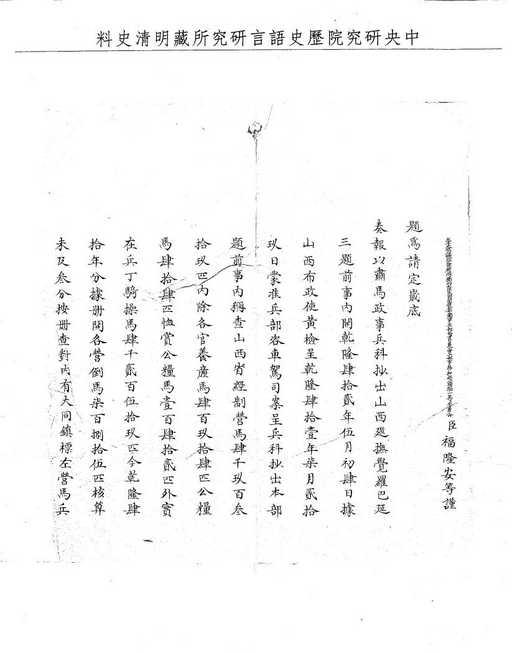 中央研究院歷史語言研究所藏明清史料
臣福隆安等謹
題為請定歲底
奏報以肅馬政事兵科抄出山西巡撫覺羅巴延
三題前事內開乾隆肆拾貳年伍月初肆日據
山西布政使黃檢呈乾隆肆拾壹年柒月貳拾
玖日蒙准兵部咨車駕司案呈兵科抄出本部
題前事內稱查山西省經制營馬肆千玖百叁
拾玖匹內除各官養廉馬肆百玖拾肆匹公糧
馬肆拾肆匹恤賞公糧馬壹百肆拾貳匹外實
在兵丁騎操馬肆千貳百伍拾玖匹今乾隆肆
拾年分據冊開各營倒馬柒百捌拾伍匹核算
未及叁分按冊查對內有大同鎮標左營馬兵